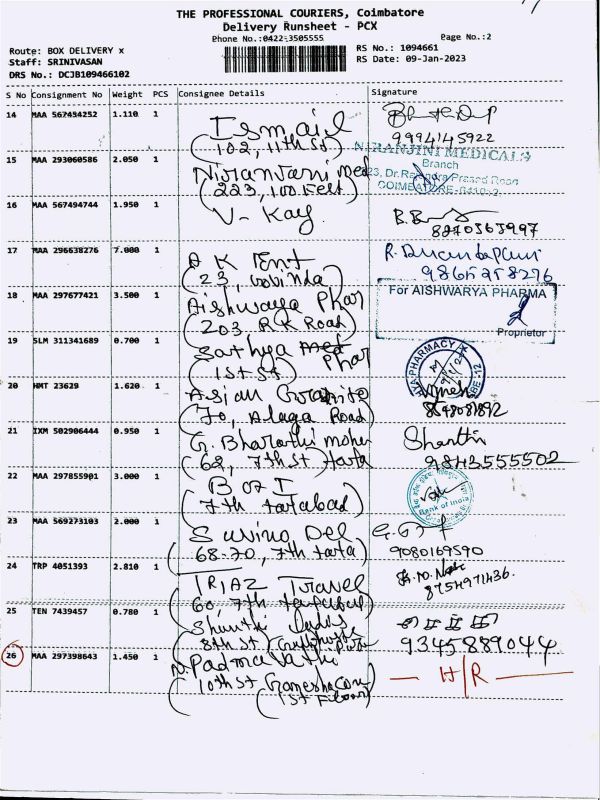 THE PROFESSIONAL COURIERS, Coimbatore
Delivery Runsheet - PCX
Phone No.:0422-3505555
Page No.:2
Route: BOX DELIVERY x
Staff: SRINIVASAN
DRS No.: DCJB109466102
RS No.: 1094661
RS Date: 09-Jan-2023
S No Consignment No Weight PCS Consignee Details Signature
14 MAA 567454252 1.110 1 Ismail
(102, 11th St)
9994145922
15 MAA 293060586 2.050 1 Med
(223, 100 Feet)
NIRANJINI MEDICALS
Branch
Road
COIMBATORE
16 MAA 567494744 1.950 1 V- Kay
17 MAA 296638276 7.000 1 A K Ent
(23, Govinda)
9865258276
18 MAA 297677421 3.500 1 Aishwarya Phar
(203, R K Road)
For AISHWARYA PHARMA
Proprietor
19 SLM 311341689 0.700 1 Sathya Phar
(1st St)
PHARMACY
20 HMT 23629 1.620 1 Asian Granite
(70, Alaga Road)
21 IXM 502906444 0.950 1 G. Bharathi mohan
(62, 7th St) tata
Shanthi
9843555502
22 MAA 297855901 3.000 1 B of I
7th tatabad)
Bank of India
23 MAA 569273103 2.000 1 Suvino Del
(68-70, 7th tata)
9080169590
24 TRP 4051393 2.810 1 TRIAZ Travel
(60, 7th
8754971436
25 TEN 7439457 0.780 1
8th St)
9345889044
26 MAA 297398643 1.450 1 N. Padmavathi
(10th St
(1st Floor)
H/R